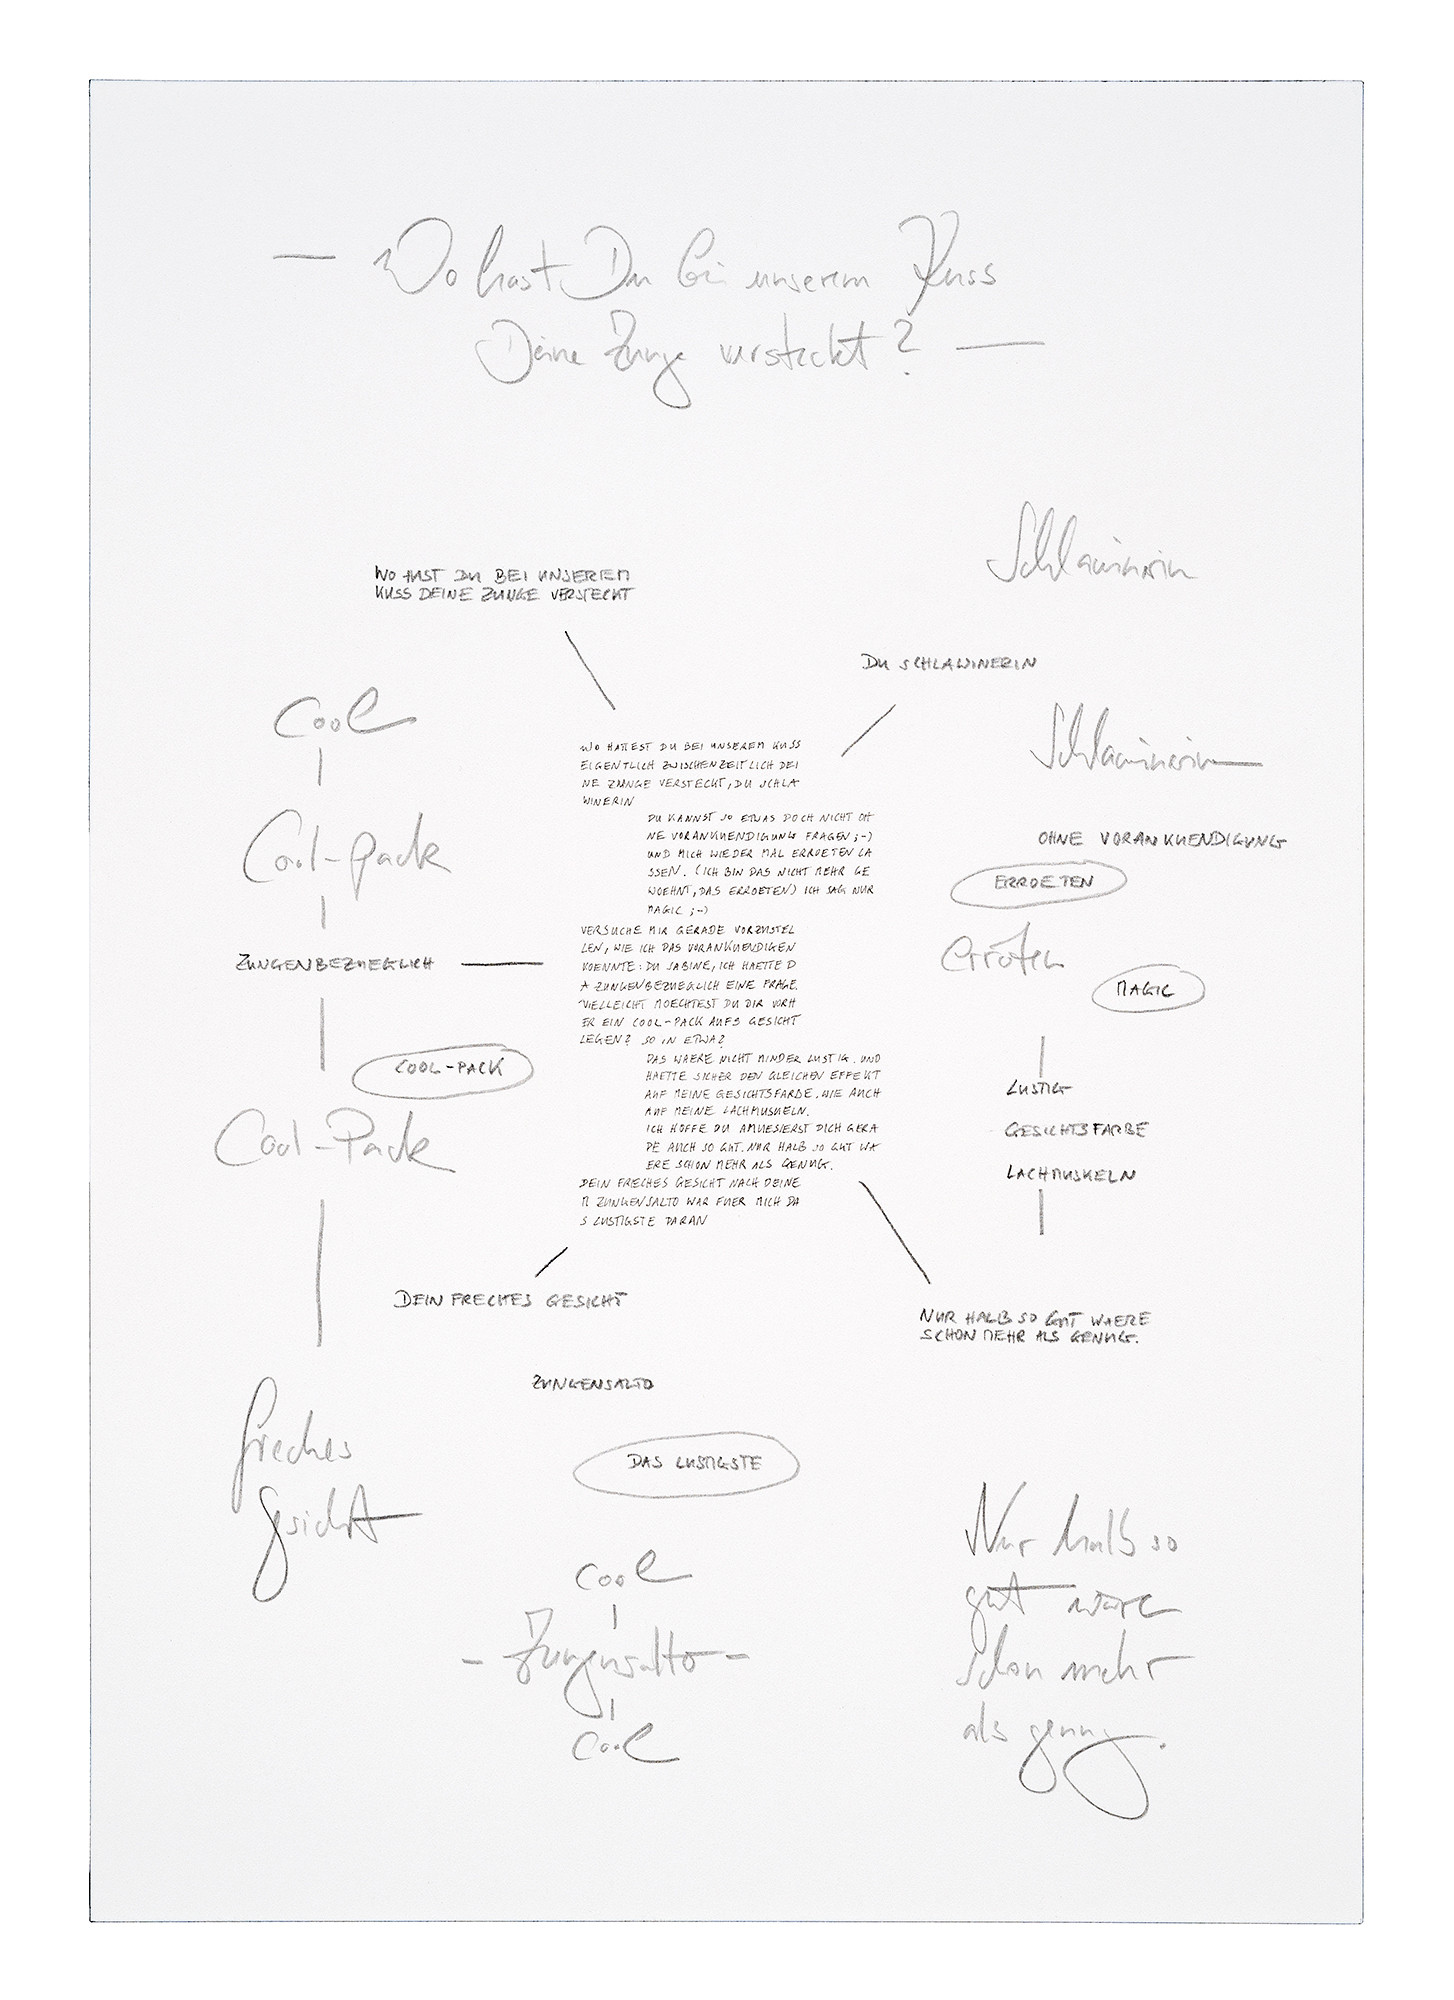 — Wo hast Du bei unserem Kuss
Deine Zunge versteckt? —
Schlawinerin
WO HAST DU BEI UNSEREM
KUSS DEINE ZUNGE VERSTECKT
DU SCHLAWINERIN
Cool
Schlawinerin
WO HATTEST DU BEI UNSEREM KUSS
EIGENTLICH ZWISCHENZEITLICH DEI
NE ZUNGE VERSTECKT, DU SCHLA
WINERIN
DU KANNST SO ETWAS DOCH NICHT OH
NE VORANKUENDIGUNG FRAGEN ;-)
UND MICH WIEDER MAL ERROETEN LA
SSEN. (ICH BIN DAS NICHT MEHR GE
WOEHNT, DAS ERROETEN) ICH SAG NUR
MAGIC ;-)
VERSUCHE MIR GERADE VORZUSTEL
LEN, WIE ICH DAS VORANKUENDIGEN
KOENNTE: DU SABINE, ICH HAETTE D
A ZUNGENBEZUEGLICH EINE FRAGE.
VIELLEICHT MOECHTEST DU DIR VORH
ER EIN COOL-PACK AUFS GESICHT
LEGEN? SO IN ETWA?
DAS WAERE NICHT MINDER LUSTIG. UND
HAETTE SICHER DEN GLEICHEN EFFEKT
AUF MEINE GESICHTSFARBE. WIE AUCH
AUF MEINE LACHMUSKELN.
ICH HOFFE DU AMUESIERST DICH GERA
DE AUCH SO GUT. NUR HALB SO GUT WA
ERE SCHON MEHR ALS GENUG.
DEIN FRECHES GESICHT NACH DEINE
M ZUNGENSALTO WAR FUER MICH DA
S LUSTIGSTE DARAN
Cool-pack
OHNE VORANKUENDIGUNG
ERROETEN
Eröten
ZUNGENBEZUEGLICH
MAGIC
COOL-PACK
LUSTIG
GESICHTSFARBE
Cool-Pack
LACHMUSKELN
DEIN FRECHES GESICHT
NUR HALB SO GUT WAERE
SCHON MEHR ALS GENUG.
ZUNGENSALTO
freches
Gesicht
DAS LUSTIGSTE
Cool
- Zungensalto -
Cool
Nur halb so
gut wäre
schon mehr
als genug.